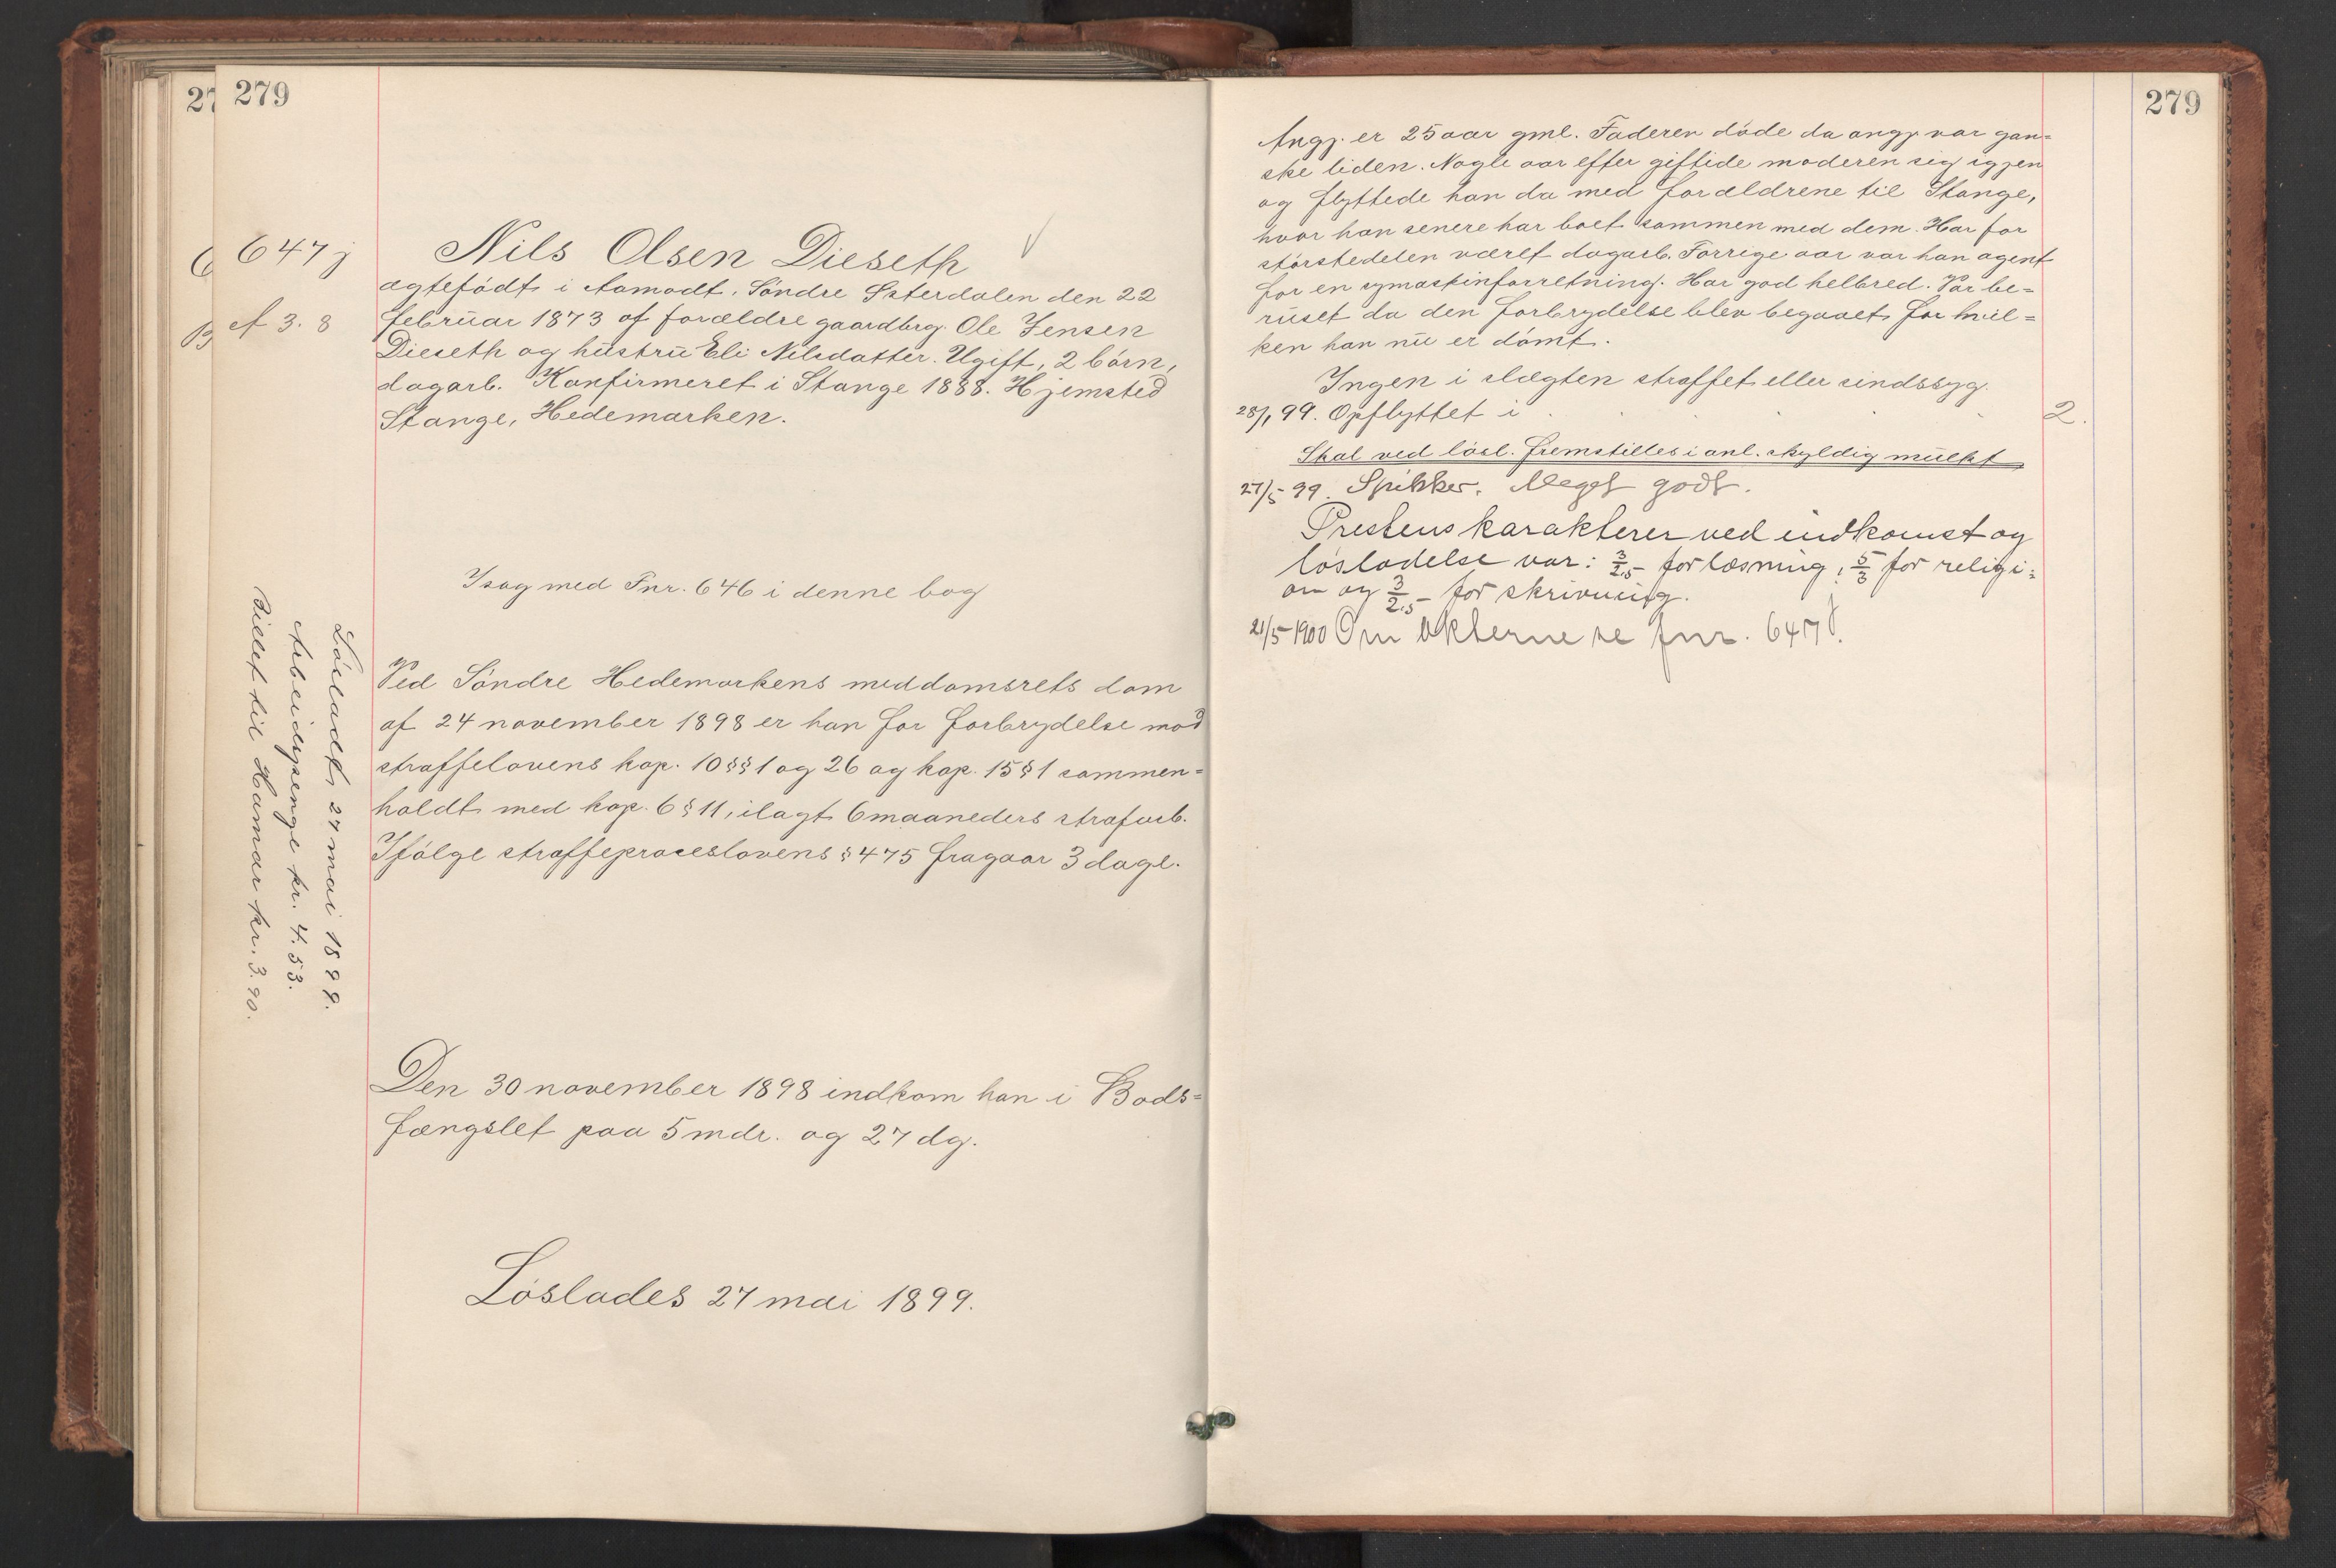 279
647 j
ef 3. 8
Nils Olsen Dieseth
ægtefödt i Aamodt, Söndre Østerdalen den 22
februar 1873 af forældre gaardbrg. Ole Jensen
Dieseth og hustru Eli Nilsdatter. Ugift, 2 börn,
dagarb. Konfirmeret i Stange 1888. Hjemsted
Stange, Hedemarken.
I sag med Fnr. 646 i denne bog
Ved Söndre Hedemarkens meddomsrets dom
af 24 november 1898 er han for forbrydelse mod
straffelovens kap. 10 §§ 1 og 26 og kap. 15 § 1 sammen=
holdt med kap. 6 § 11, ilagt 6 maaneders strafarb.
Ifölge straffeproceslovens § 475 fragaar 3 dage.
Den 30 november 1898 indkom han i Bods=
fængslet paa 5 mdr. og 27 dg.
Löslades 27 mai 1899.
Lösladt 27 mai 1899.
Arbeidspenge kr. 4.53.
Billet til Hamar kr. 3.90.
279
Angj. er 25 aar gml. Faderen döde da angj. var gan=
ske liden. Nogle aar efter giftede moderen sig igjen
og flyttede han da med forældrene til Stange,
hvor han senere har boet sammen med dem. Har for
störstedelen været dagarb. Forrige aar var han agent
for en symaskinforretning. Har god helbred. Var be=
ruset da den forbrydelse blev begaaet for hvil=
ken han nu er dömt.
Ingen i slægten straffet eller sindssyg.
28/1 99. Opflyttet i . . . . 2.
Skal ved lösl. fremstilles i anl. skyldig mulkt
27/5 99. Spikker. Meget godt.
Prestens karakterer ved indkomst og
lösladelse var: 3/2,5 for læsning, 5/3 for religi=
on og 3/2,5 for skrivning.
21/5 1900 Om akterne se fnr. 647 j.